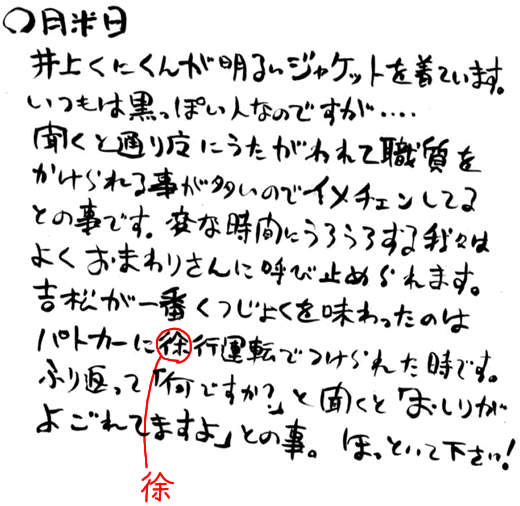 〇月米日
井上くにくんが明るいジャケットを着ています。
いつもは黒っぽい人なのですが‥‥
聞くと通り度にうたがわれて職質を
かけられる事が多いのでイメチェンしてる
との事です。変な時間にうろうろする我々は
よくおまわりさんに呼び止められます。
吉松が一番くつじょくを味わったのは
パトカーに徐行運転でつけられた時です。
ふり返って「何ですか?」と聞くと「おしりが
よごれてますよ」との事。ほっといて下さい!
徐